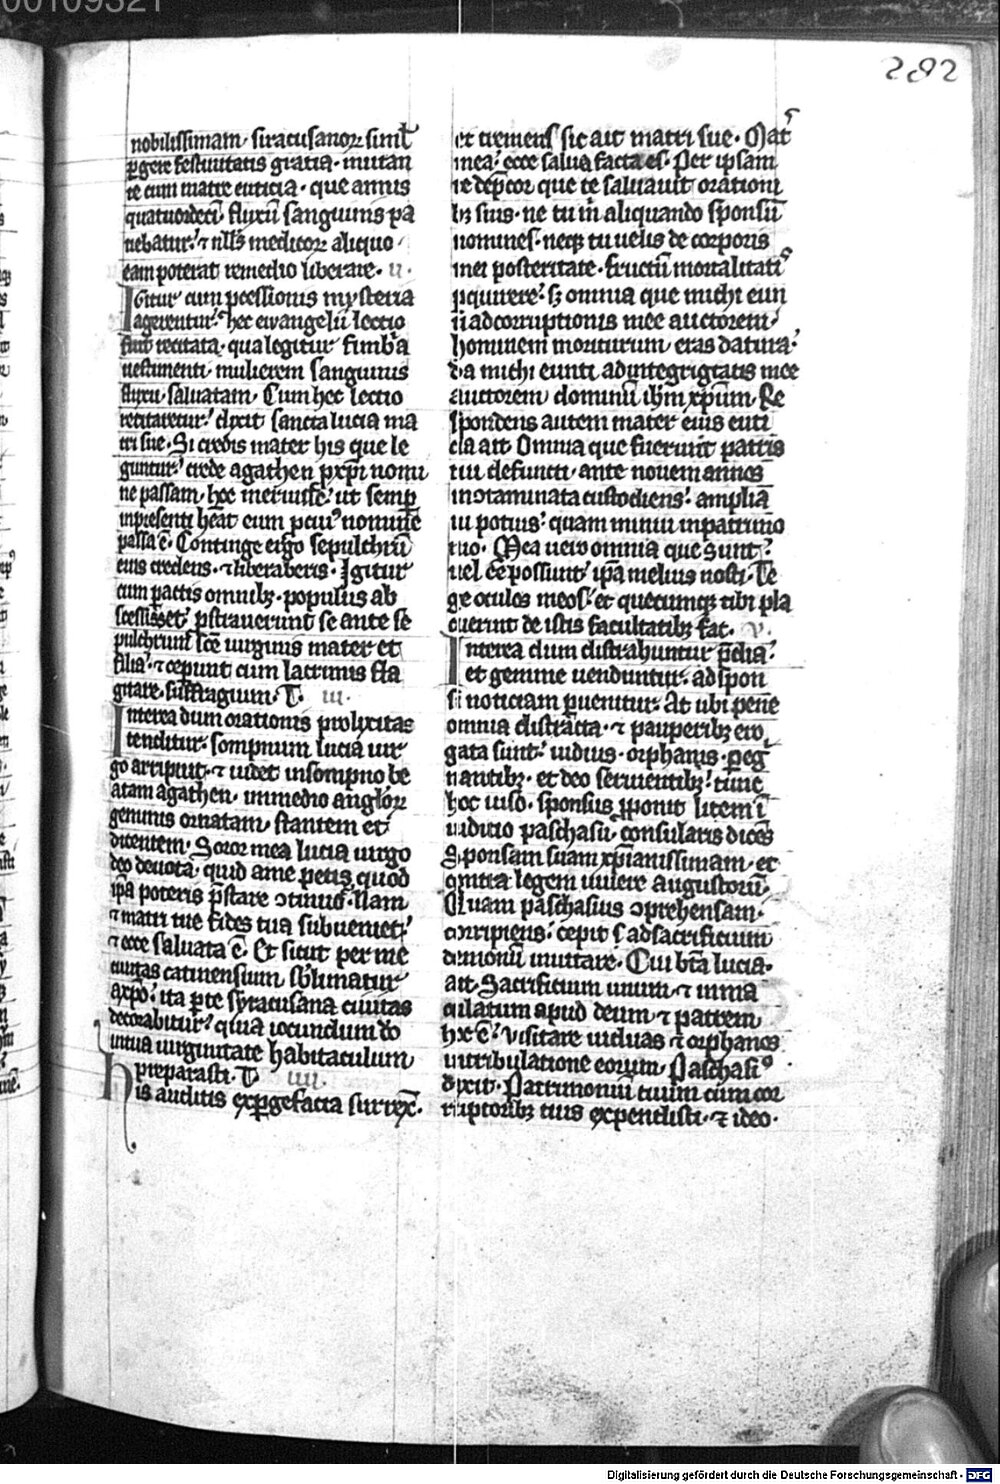 00109321
282
nobilissimam· siracusanoꝝ simĺ
ꝑgere festiuitatis gratia· inuitan
te cum matre euticia· que annis
quatuordeci̅· fluxu̅ sanguinis pa
tiebatur· ⁊ nłłs medicoꝝ aliquo
eam poterat remedio liberare· ii·
Igitur cum ꝓcessionis mysteria
agerentur· hec ewangelii lectio
fuit recitata· qua legitur fimb̾a
uestimenti· mulierem sanguinis
fluxu· saluatam· Cum hec lectio
recitaretur· dixit sancta lucia ma
tri sue· Si credis mater his que le
guntur· crede agathen ꝓ xp̅i nomi
ne passam· hoc meruisse· ut semꝑ
in presenti he̅at eum ꝓ cuiꝰ nomine
passa e̅· Continge ergo sepulchru̅
eius credens· ⁊ liberaberis· Igitur
cum pactis omnibꝫ· populus ab
scessisset· ꝓstrauerunt se ante se
pulchrum sc̅e uirginis mater et
filia· ⁊ ceperunt cum lacrimis fla
gitare· suffragium· T· iii·
Interea dum orationis prolixitas
tenditur· sompnum lucia uir
go arripuit· ⁊ uidet in sompno be
atam agathen· in medio angl̾oꝝ
gemmis ornatam· stantem et
dicentem· Soror mea lucia uirgo
deo deuota· quid a me petis quod
ip̅a poteris p̅stare ↄtinuo· Nam
⁊ matri tue fides tua subueniet·
⁊ ecce saluata e̅· Et sicut per me
ciuitas catinensium sb̾limatur
a xp̅o· ita ꝑ te syracusana ciuitas
decorabitur· quia iocundum do
in tua uirginitate habitaculum
preparasti· T· iiii·
His auditis exꝑgefacta surrex̅·
et tremens sic ait matri sue· Mat̾
mea· ecce salua facta es· Per ipsam
te dep̅cor que te saluauit orationi
bꝫ suis· ne tu m̅ aliquando sponsu̅
nomines· neqꝫ tu uelis de corporis
mei posteritate· fructu̅ mortalitatꝰ
ꝓquirere· sꝫ omnia que michi eun
ti ad corruptionis mee auctorem·
hominem moriturum eras datura·
da michi eunti ad integrigtatis mee
auctorem dominu̅ ih̅m xp̅um· Re
spondens autem mater eius euti
cia ait Omnia que fuerunt patris
tui defuncti· ante nouem annos
incotaminata custodiens· amplia̅
ui potius· quam minui in patrimo
nio· Mea uero omnia que sunt·
uel ee̅ possunt· ip̅a melius nosti· Te
ge oculos meos· et quecumqꝫ tibi pla
cuerint de istis facultatibꝫ fac· v·
Interea dum distrahuntur p̅dia·
et gemme uenduntur· ad spon
si noticiam ꝑuenitur· At ubi pene
omnia distracta· ⁊ pauperibꝫ ero
gata sunt· uiduis· orphanis· ꝑeg̾
nantibꝫ· et deo seruientibꝫ· tunc
hoc uiso· sponsus ꝓponit litem i̅
iudicio paschasii· consularis dice̅s
Sponsam suam xp̅ianissimam· et
contra legem uiuere augustoru̅·
Quam paschasius ↄprehensam·
corripiens· cepit ad sacrificium
demonu̅ inuitare· Cui b̅ta lucia·
ait· Sacrificium uiuum· ⁊ inma
culatum apud deum· ⁊ patrem
hoc e̅· visitare uiduas ⁊ orphanos
in tribulatione eorum· Paschasiꝰ
dixit· Patrimonium tuum cum cor
ruptoribꝫ tuis expendisti· ⁊ ideo·
Digitalisierung gefördert durch die Deutsche Forschungsgemeinschaft - DFG